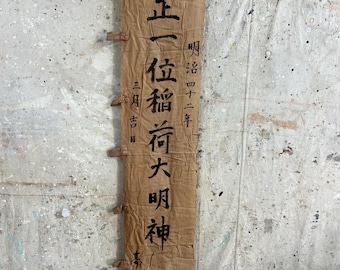 明治四十二年
正一位稲荷大明神
三月吉日